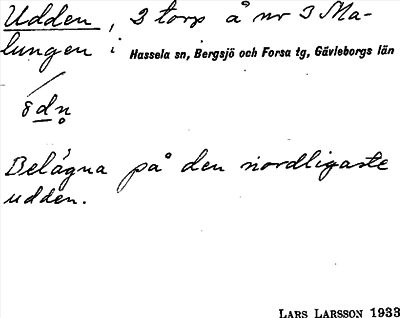 Udden, 2 torp å nr 3 Ma-
lungen i Hassela sn, Bergsjö och Forsa tg, Gävleborgs län
8dn̥
Belägna på den nordligaste
udden.
LARS LARSSON 1933